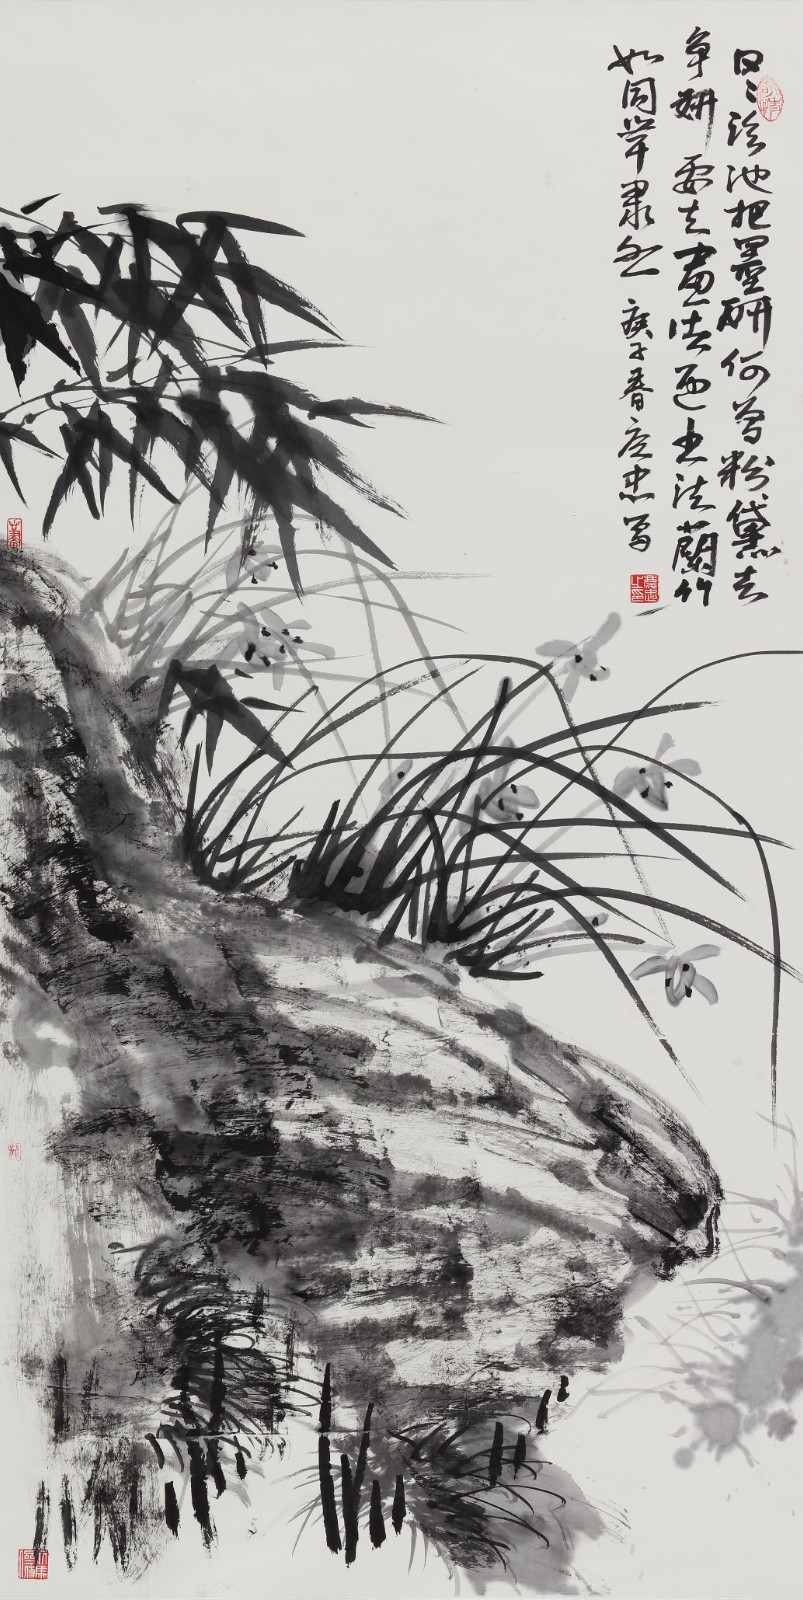 日〻临池把墨研何曾粉黛去
争妍要知畫法通书法蘭竹
如同草隶然 庚子春忠写